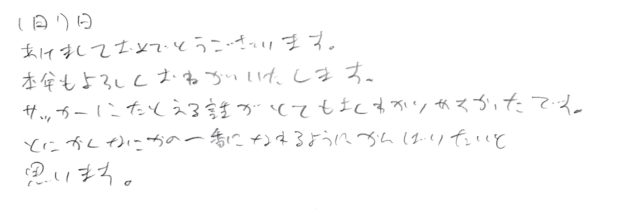 1月17日
あけましておめでとうございます。
本年もよろしくおねがいいたします。
サッカーにたとえる話がとてもよくわかりやすかったです。
とにかくなにかの一番になれるようにがんばりたいと
思います。